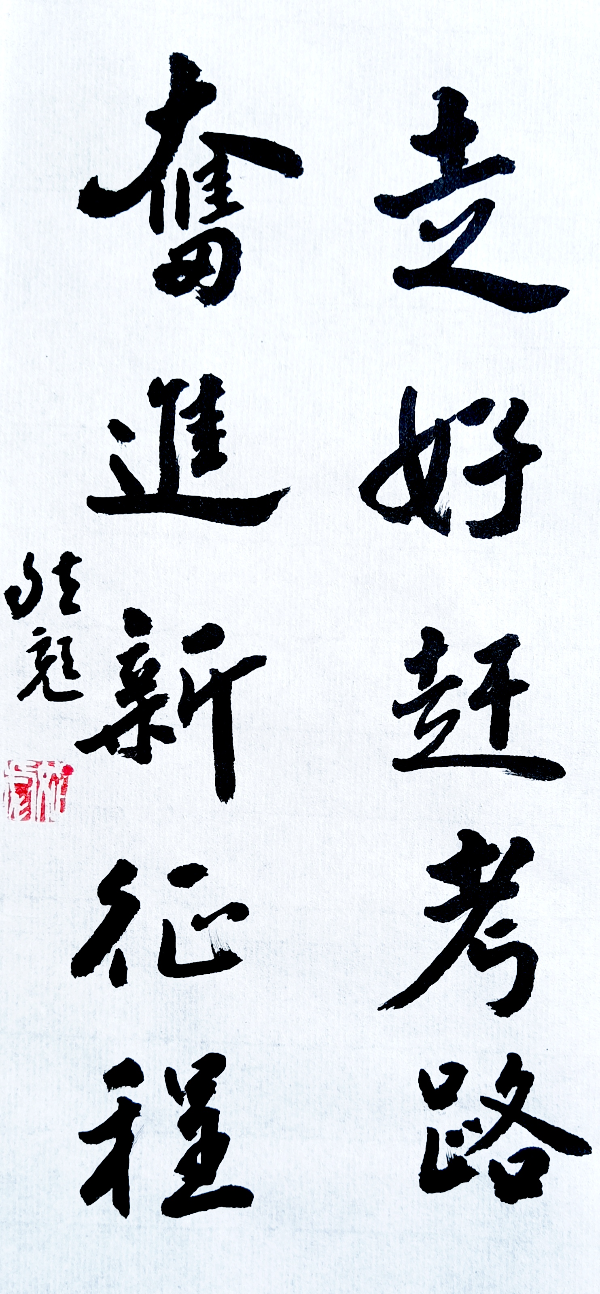 走好赶考路
奮進新征程